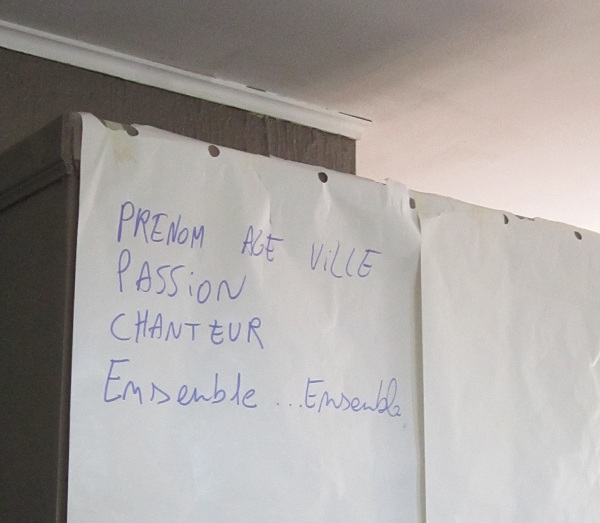 PRENOM AGE VILLE
PASSiON
CHANTEUR
Ensemble ... Ensemble